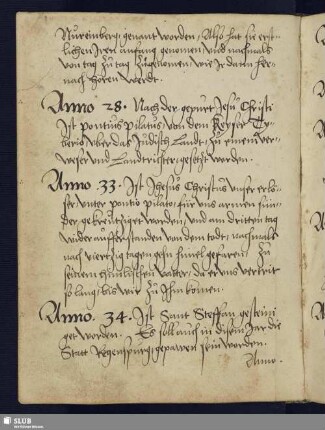 Nuremberg, genant worden, Also hat sie erst-
lichen Iren anfang genomen, und nachmals
von tag zu tag zugenomen wie Ir darin her-
nach hören werdt.
Anno 28. Nach der gepurt Jesu Christi
Ist pontius pilatus von dem Keyser Ty-
berio uber das Judisch Landt, zu einem ver-
weser und Landtrichter, gesetzt worden.
Anno 33. Ist Jhesus Christus unser erlö-
ser unter pontio pilato, für uns armen sün-
der gekreutziget worden, und am dritten tag
wider aufferstanden von dem todt, nachmals
nach viertzig tagen gehn himel gefaren, zu
seinem himlischen vatter, da er uns vertrit
so lang, bis wir zu Ihm komen.
Anno. 34. Ist Sant Steffan gesteini
get worden. Es soll auch in disem Jar die
Statt Regenspurg, gepauen sein worden.
Anno.
SLUB